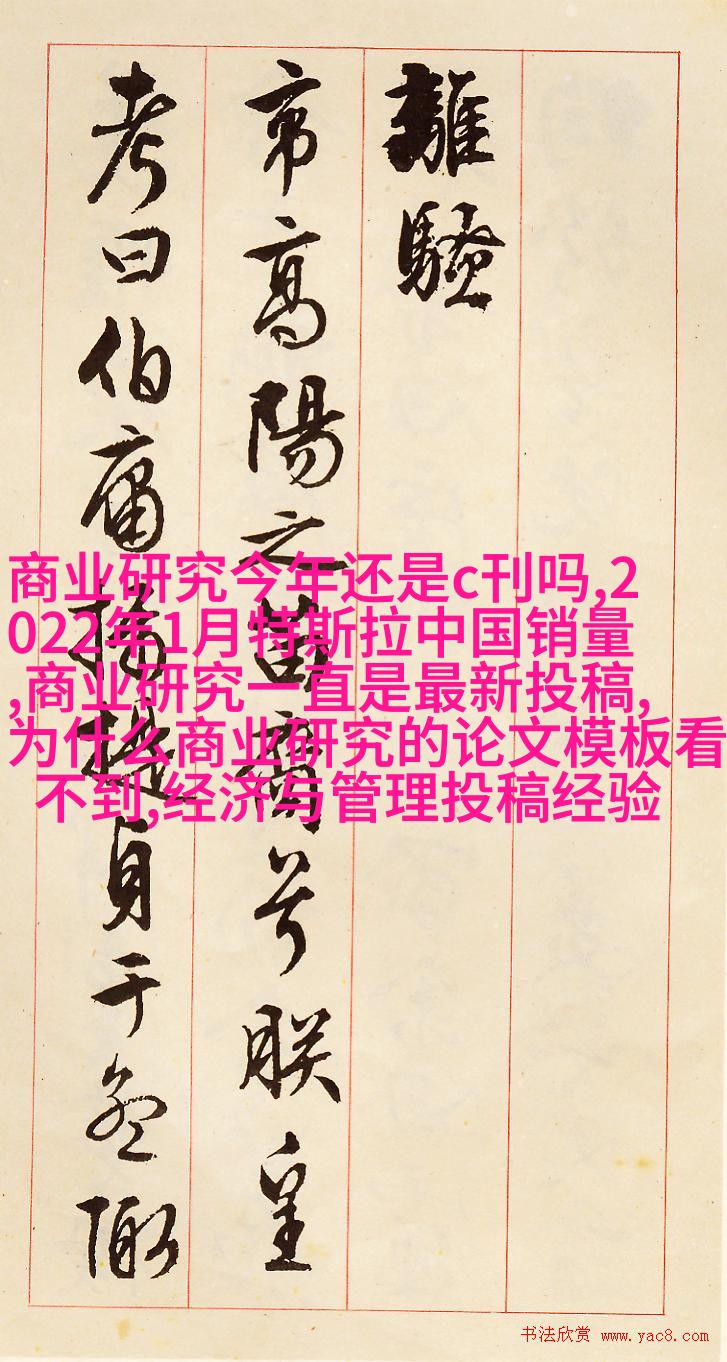 離騷
帝高陽之苗裔兮朕皇
考曰伯庸攝提貞于孟陬
商业研究今年还是c刊吗,2
022年1月特斯拉中国销量
,商业研究一直是最新投稿,
为什么商业研究的论文模板看
不到,经济与管理投稿经验
书法欣赏 www.yac8.com